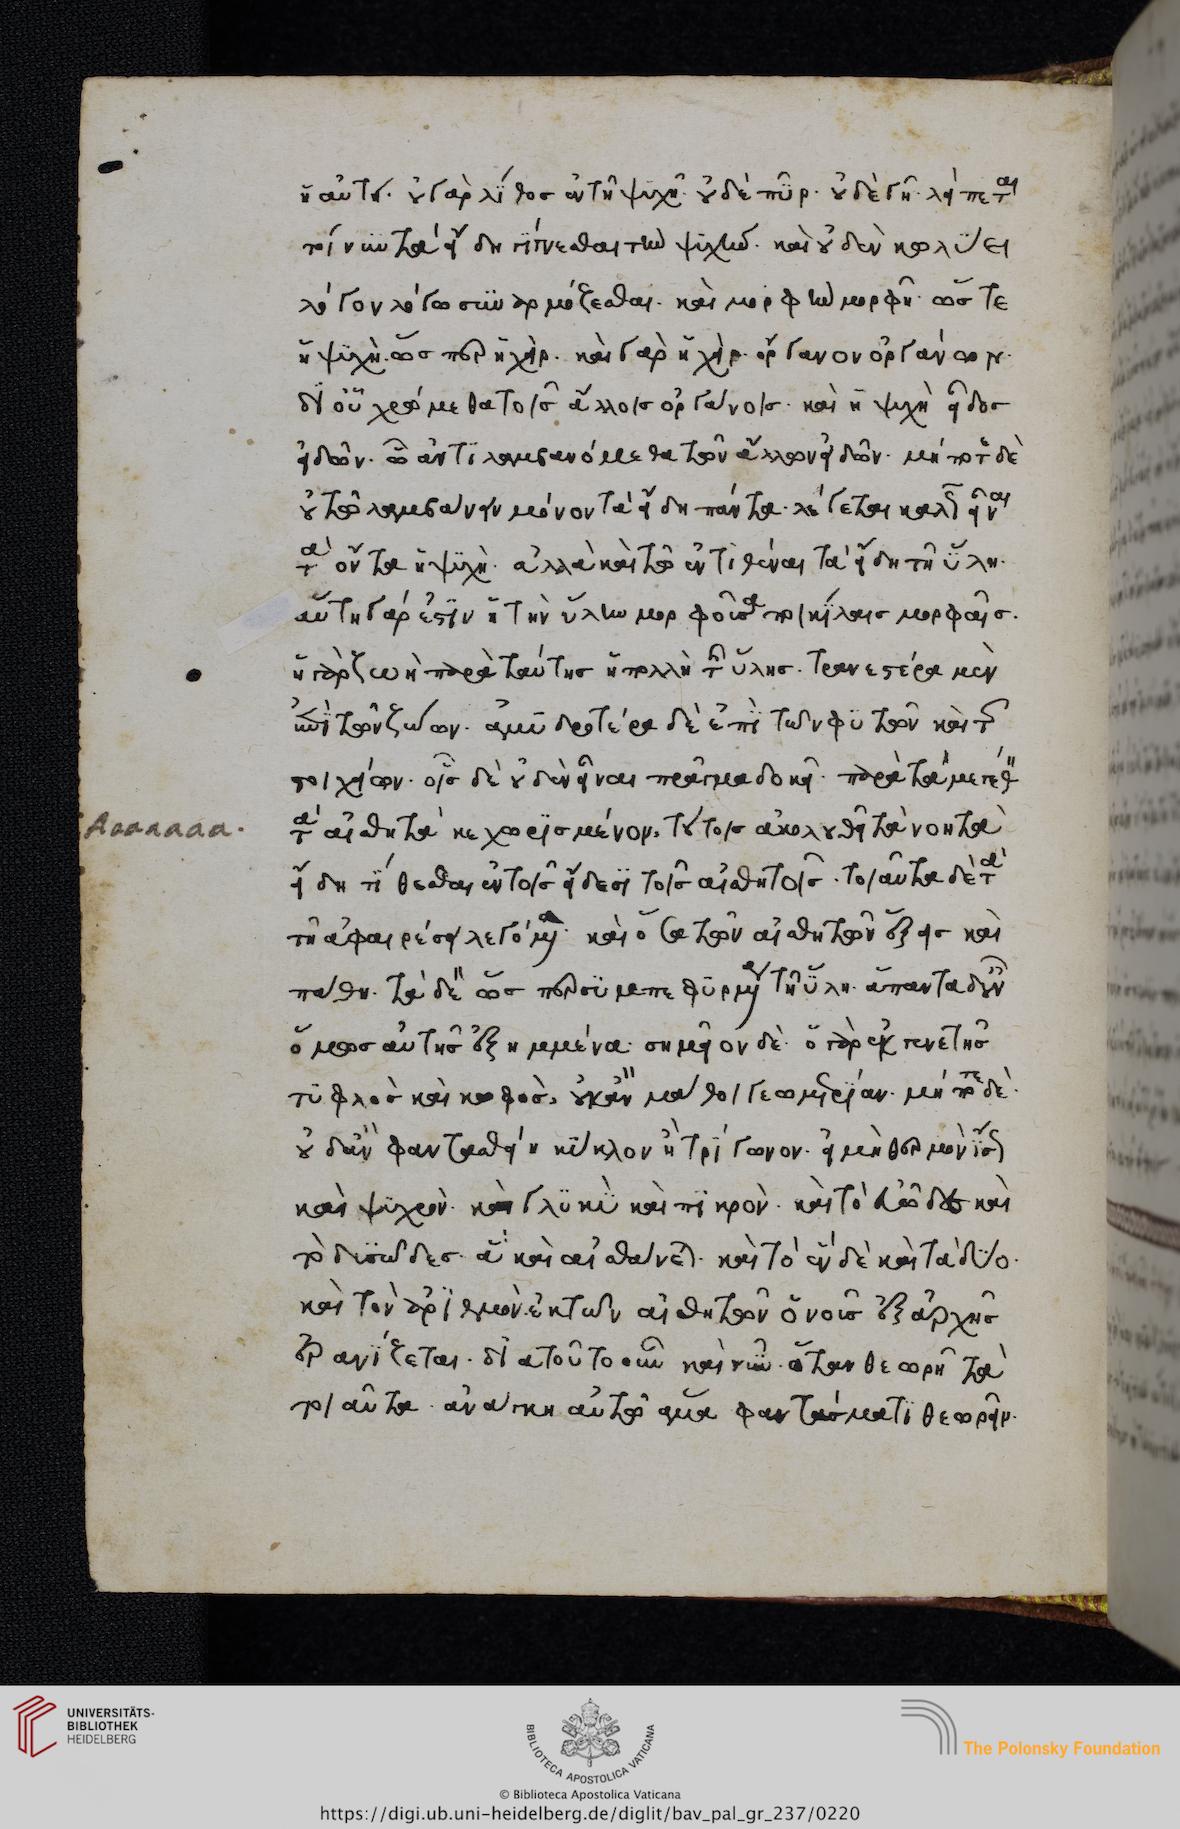 ἢ αὐτά. οὐ γὰρ λίθος ἐν τῆ ψυχῆ. οὐδὲ πῦρ. οὐδὲ γῆ. λείπεται
τοίνυν τὰ εἴδη γίγνεσθαι τὴν ψυχήν. καὶ οὐδὲν κωλύει
λόγον λόγω συναρμόζεσθαι. καὶ μορφὴν μορφῆ. ὥστε
ἡ ψυχὴ ὥσπερ ἡ χείρ. καὶ γὰρ ἡ χεὶρ ὄργανον ὀργάνων.
δι' οὗ χρώμεθα τοῖς ἄλλοις ὀργάνοις. καὶ ἡ ψυχὴ εἶδος
εἰδῶν. ὧ ἀντιλαμβανόμεθα τῶν ἄλλων εἰδῶν. μήποτε δὲ
οὐ τῶ λαμβάνειν μόνον τὰ εἴδη πάντα. λέγεται καὶ εἶναι
τὰ ὄντα ἡ ψυχὴ. ἀλλὰ καὶ τῶ ἐντιθέναι τὰ εἴδη τῆ ὕλη.
αὕτη γάρ ἐστιν ἡ τὴν ὕλην μορφοῦσα ποικίλαις μορφαῖς.
ἡ γὰρ ζωὴ παρὰ ταύτης ἡ πολλὴ τῆς ὕλης. τρανεστέρα μὲν
ἐπὶ τῶν ζώων. ἀμυδροτέρα δὲ ἐπὶ τῶν φυτῶν καὶ τῶν
στοιχείων. οἷς δὲ οὐδὲν εἶναι πρᾶγμα δοκεῖ. παρὰ τὰ μεγέθη
τὰ αἰσθητὰ κεχωρισμένον, τούτοις ἀκολουθεῖ τὰ νοητὰ
εἴδη τίθεσθαι ἐν τοῖς εἴδεσι τοῖς αἰσθητοῖς. τοιαῦτα δὲ τὰ
τῆ ἀφαιρέσει λεγόμενα. καὶ ὅσα τῶν αἰσθητῶν ἕξεις καὶ
πάθη. τὰ δὲ ὥσπερ συμπεφυρμένα τῆ ὕλη. ἅπαντα δ' οὖν
ὅμως αὐτῆς ἐξημμένα. σημεῖον δὲ. ὁ γὰρ ἐκ γενετῆς
τυφλὸς καὶ κωφὸς, οὐκ ἂν μάθοι γεωμετρίαν. μήποτε δὲ
οὐδ' ἂν φαντασθείη κύκλον ἢ τρίγωνον. εἰ μὴ θερμὸν ἴσως
καὶ ψυχρὸν. καὶ γλυκὺ καὶ πικρὸν. καὶ τὸ εὐῶδες καὶ
τὸ δυσῶδες. ἃ καὶ αἰσθάνεται. καὶ τὸ ἓν δὲ καὶ τὰ δύο.
καὶ τὸν ἀριθμὸν. ἐκ τῶν αἰσθητῶν ὁ νοῦς ἐξ ἀρχῆς
ἐρανίζεται. διὰ τοῦτο οὖν καὶ νῦν. ὅταν θεωρῆ τὰ
τοιαῦτα. ἀνάγκη αὐτῶ ἅμα φαντάσματι θεωρεῖν.
Aaaaaaa.
UNIVERSITÄTS-
BIBLIOTHEK
HEIDELBERG
BIBLIOTECA APOSTOLICA VATICANA
The Polonsky Foundation
© Biblioteca Apostolica Vaticana
https://digi.ub.uni-heidelberg.de/diglit/bav_pal_gr_237/0220